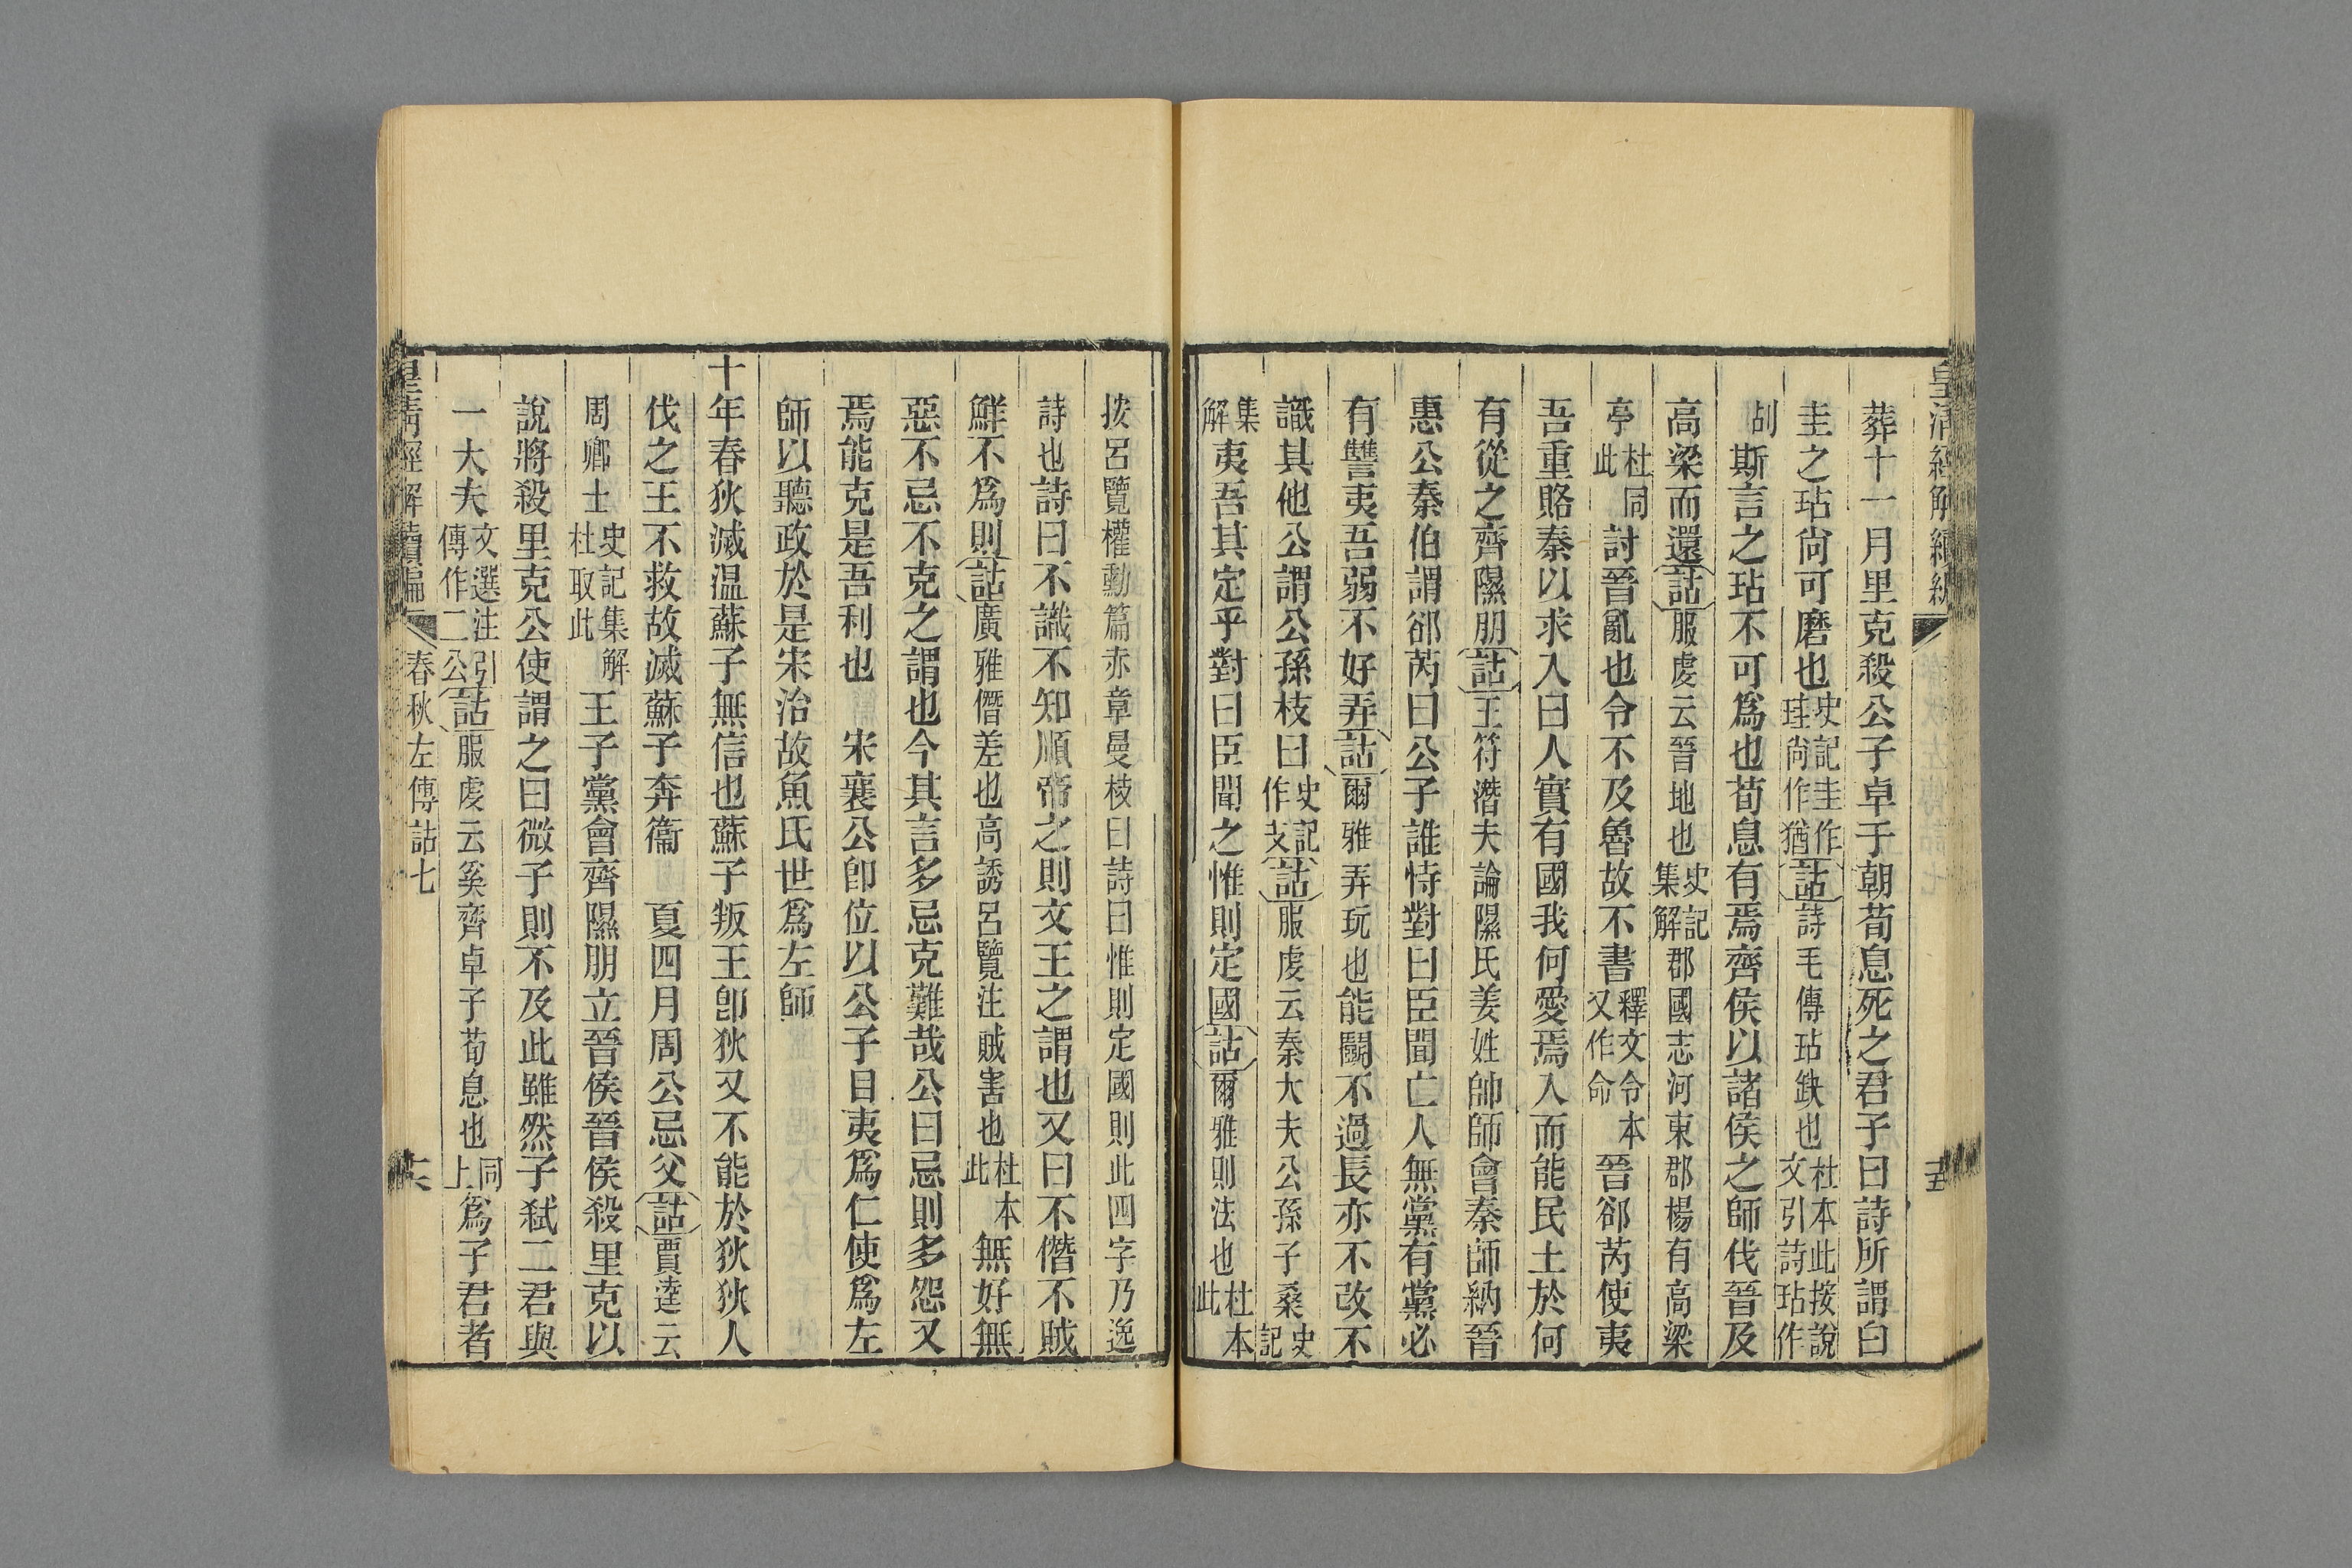 皇清經解續編
葬十一月里克殺公子卓于朝荀息死之君子曰詩所謂白
圭之玷尙可磨也史記圭作珪尙作猶詁詩毛傳玷缺也杜本此按說文引詩玷作
𠚏斯言之玷不可爲也荀息有焉齊侯以諸侯之師伐晉及
高梁而還詁服虔云晉地也史記集解郡國志河東郡楊有高梁
亭杜同此討晉亂也令不及魯故不書釋文令本又作命晉郤芮使夷
吾重賂秦以求入曰人實有國我何愛焉入而能民土於何
有從之齊隰朋詁王符潛夫論隰氏姜姓帥師會秦師納晉
惠公秦伯謂郤芮曰公子誰恃對曰臣聞亡人無黨有黨必
有讐夷吾弱不好弄詁爾雅弄玩也能鬭不過長亦不改不
識其他公謂公孫枝曰史記作支詁服虔云秦大夫公孫子桑史記
集解夷吾其定乎對曰臣聞之惟則定國詁爾雅則法也杜本此
按呂覽權勳篇赤章曼枝曰詩曰惟則定國則此四字乃逸
詩也詩曰不識不知順帝之則文王之謂也又曰不僭不賊
鮮不爲則詁廣雅僭差也高誘呂覽注賊害也杜本此無好無
惡不忌不克之謂也今其言多忌克難哉公曰忌則多怨又
焉能克是吾利也　宋襄公卽位以公子目夷爲仁使爲左
師以聽政於是宋治故魚氏世爲左師
十年春狄滅温蘇子無信也蘇子叛王卽狄又不能於狄狄人
伐之王不救故滅蘇子奔衞　夏四月周公忌父詁賈逵云
周卿士史記集解杜取此王子黨會齊隰朋立晉侯晉侯殺里克以
說將殺里克公使謂之曰微子則不及此雖然子弑二君與
一大夫文選注引傳作二公詁服虔云奚齊卓子荀息也同上爲子君者
皇清經解續編　春秋左傳詁七